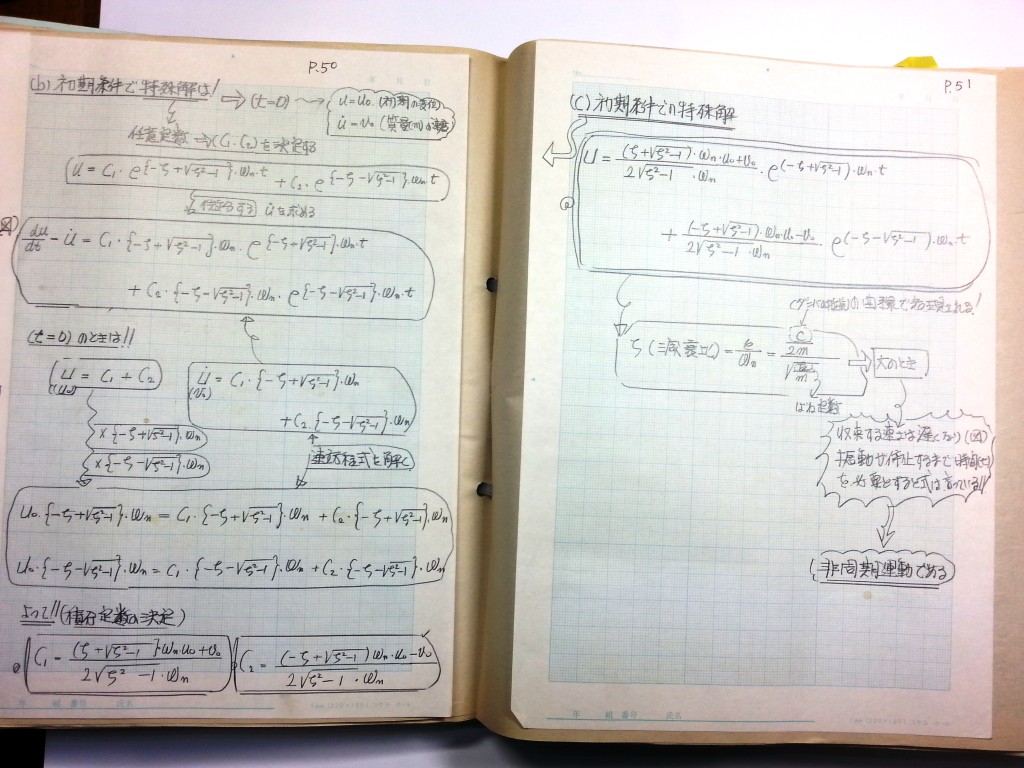 P.50
(b) 初期条件で特殊解は!
⇒ (t=0) → u=u₀ (初期の変位)
u̇=v₀ (質量(m)の速度)
任意定数 ⇒ (C₁・C₂)を決定する
u = C₁・e^{-ζ+√ζ²-1}・ωn・t + C₂・e^{-ζ-√ζ²-1}・ωn・t
u̇を求める
du/dt = u̇ = C₁・{-ζ+√ζ²-1}・ωn・e^{-ζ+√ζ²-1}・ωn・t
+ C₂・{-ζ-√ζ²-1}・ωn・e^{-ζ-√ζ²-1}・ωn・t
(t=0) のときは!!
u = C₁ + C₂
(u₀)
u̇ = C₁・{-ζ+√ζ²-1}・ωn
(v₀)
+ C₂・{-ζ-√ζ²-1}・ωn
×{-ζ+√ζ²-1}・ωn
×{-ζ-√ζ²-1}・ωn
連立方程式を解く
u₀・{-ζ+√ζ²-1}・ωn = C₁・{-ζ+√ζ²-1}・ωn + C₂・{-ζ+√ζ²-1}・ωn
u₀・{-ζ-√ζ²-1}・ωn = C₁・{-ζ-√ζ²-1}・ωn + C₂・{-ζ-√ζ²-1}・ωn
よって!! (積分定数の決定)
C₁ = (ζ+√ζ²-1)・ωn・u₀+v₀ / 2√ζ²-1・ωn
C₂ = (-ζ+√ζ²-1)・ωn・u₀-v₀ / 2√ζ²-1・ωn
年 組 番号 氏名
P.51
(C) 初期条件での特殊解
u = (ζ+√ζ²-1)・ωn・u₀+v₀ / 2√ζ²-1・ωn・e^(-ζ+√ζ²-1)・ωn・t
+ (-ζ+√ζ²-1)・ωn・u₀-v₀ / 2√ζ²-1・ωn・e^(-ζ-√ζ²-1)・ωn・t
ζ (減衰比) =
(C)/2m
大のとき
ばね定数
収束する速さは遅くなり (図)
振動が停止するまで時間(t)
を必要とすると式は言っている!!
非周期運動である
年 組 番号 氏名